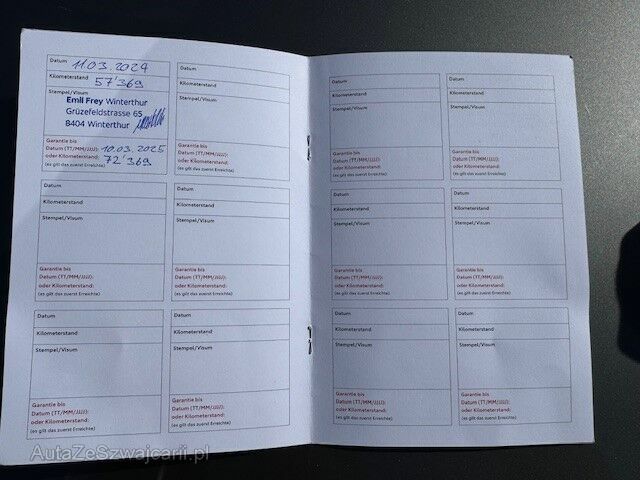 Datum 11.03.2024
Kilometerstand 57'369
Stempel/Visum
Emil Frey Winterthur
Grüzefeldstrasse 65
8404 Winterthur
Garantie bis
Datum (TT/MM/JJJJ): 10.03.2025
oder Kilometerstand: 72'369
(es gilt das zuerst Erreichte)
Datum
Kilometerstand
Stempel/Visum
Garantie bis
Datum (TT/MM/JJJJ):
oder Kilometerstand:
(es gilt das zuerst Erreichte)
Datum
Kilometerstand
Stempel/Visum
Garantie bis
Datum (TT/MM/JJJJ):
oder Kilometerstand:
(es gilt das zuerst Erreichte)
Datum
Kilometerstand
Stempel/Visum
Garantie bis
Datum (TT/MM/JJJJ):
oder Kilometerstand:
(es gilt das zuerst Erreichte)
Datum
Kilometerstand
Stempel/Visum
Garantie bis
Datum (TT/MM/JJJJ):
oder Kilometerstand:
(es gilt das zuerst Erreichte)
Datum
Kilometerstand
Stempel/Visum
Garantie bis
Datum (TT/MM/JJJJ):
oder Kilometerstand:
(es gilt das zuerst Erreichte)
Datum
Kilometerstand
Stempel/Visum
Garantie bis
Datum (TT/MM/JJJJ):
oder Kilometerstand:
(es gilt das zuerst Erreichte)
Datum
Kilometerstand
Stempel/Visum
Garantie bis
Datum (TT/MM/JJJJ):
oder Kilometerstand:
(es gilt das zuerst Erreichte)
Datum
Kilometerstand
Stempel/Visum
Garantie bis
Datum (TT/MM/JJJJ):
oder Kilometerstand:
(es gilt das zuerst Erreichte)
Datum
Kilometerstand
Stempel/Visum
Garantie bis
Datum (TT/MM/JJJJ):
oder Kilometerstand:
(es gilt das zuerst Erreichte)
Datum
Kilometerstand
Stempel/Visum
Garantie bis
Datum (TT/MM/JJJJ):
oder Kilometerstand:
(es gilt das zuerst Erreichte)
Datum
Kilometerstand
Stempel/Visum
Garantie bis
Datum (TT/MM/JJJJ):
oder Kilometerstand:
(es gilt das zuerst Erreichte)
AutaZeSzwajcarii.pl